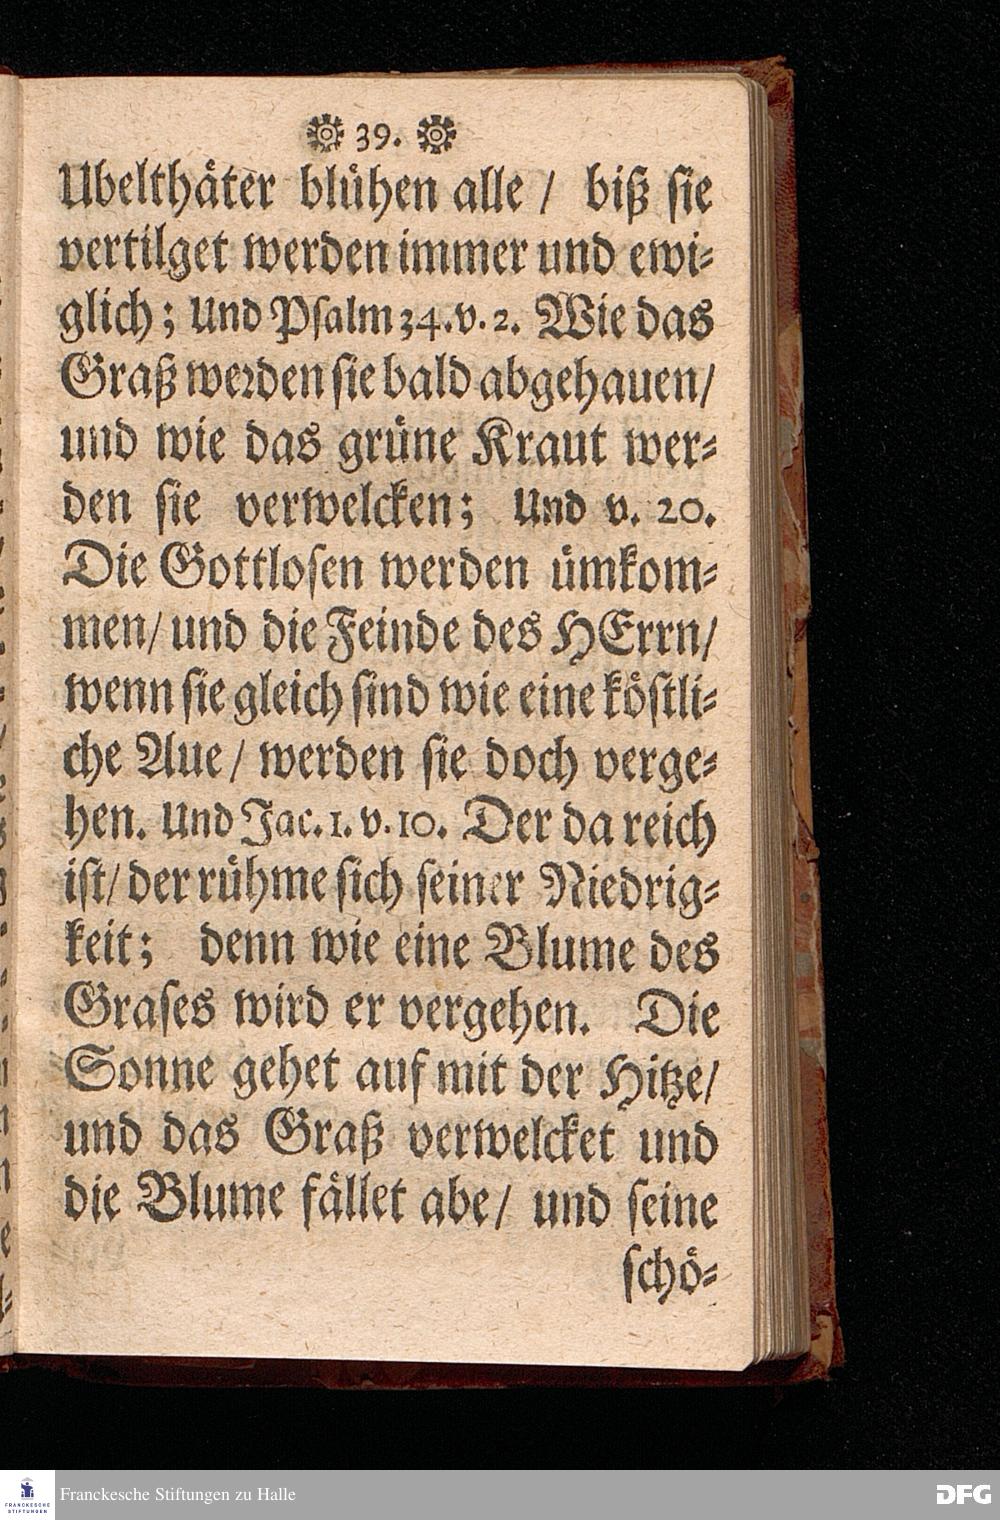 39.
Ubelthäter blühen alle / biß sie
vertilget werden immer und ewi-
glich; Und Psalm 34. v. 2. Wie das
Graß werden sie bald abgehauen/
und wie das grüne Kraut wer-
den sie verwelcken; Und v. 20.
Die Gottlosen werden ümkom-
men/ und die Feinde des HErrn/
wenn sie gleich sind wie eine köstli-
che Aue / werden sie doch verge-
hen. Und Jac. 1. v. 10. Der da reich
ist/ der rühme sich seiner Niedrig-
keit; denn wie eine Blume des
Grases wird er vergehen. Die
Sonne gehet auf mit der Hitze/
und das Graß verwelcket und
die Blume fället abe/ und seine
schö-
FRANCKESCHE
STIFTUNGEN
Franckesche Stiftungen zu Halle
DFG